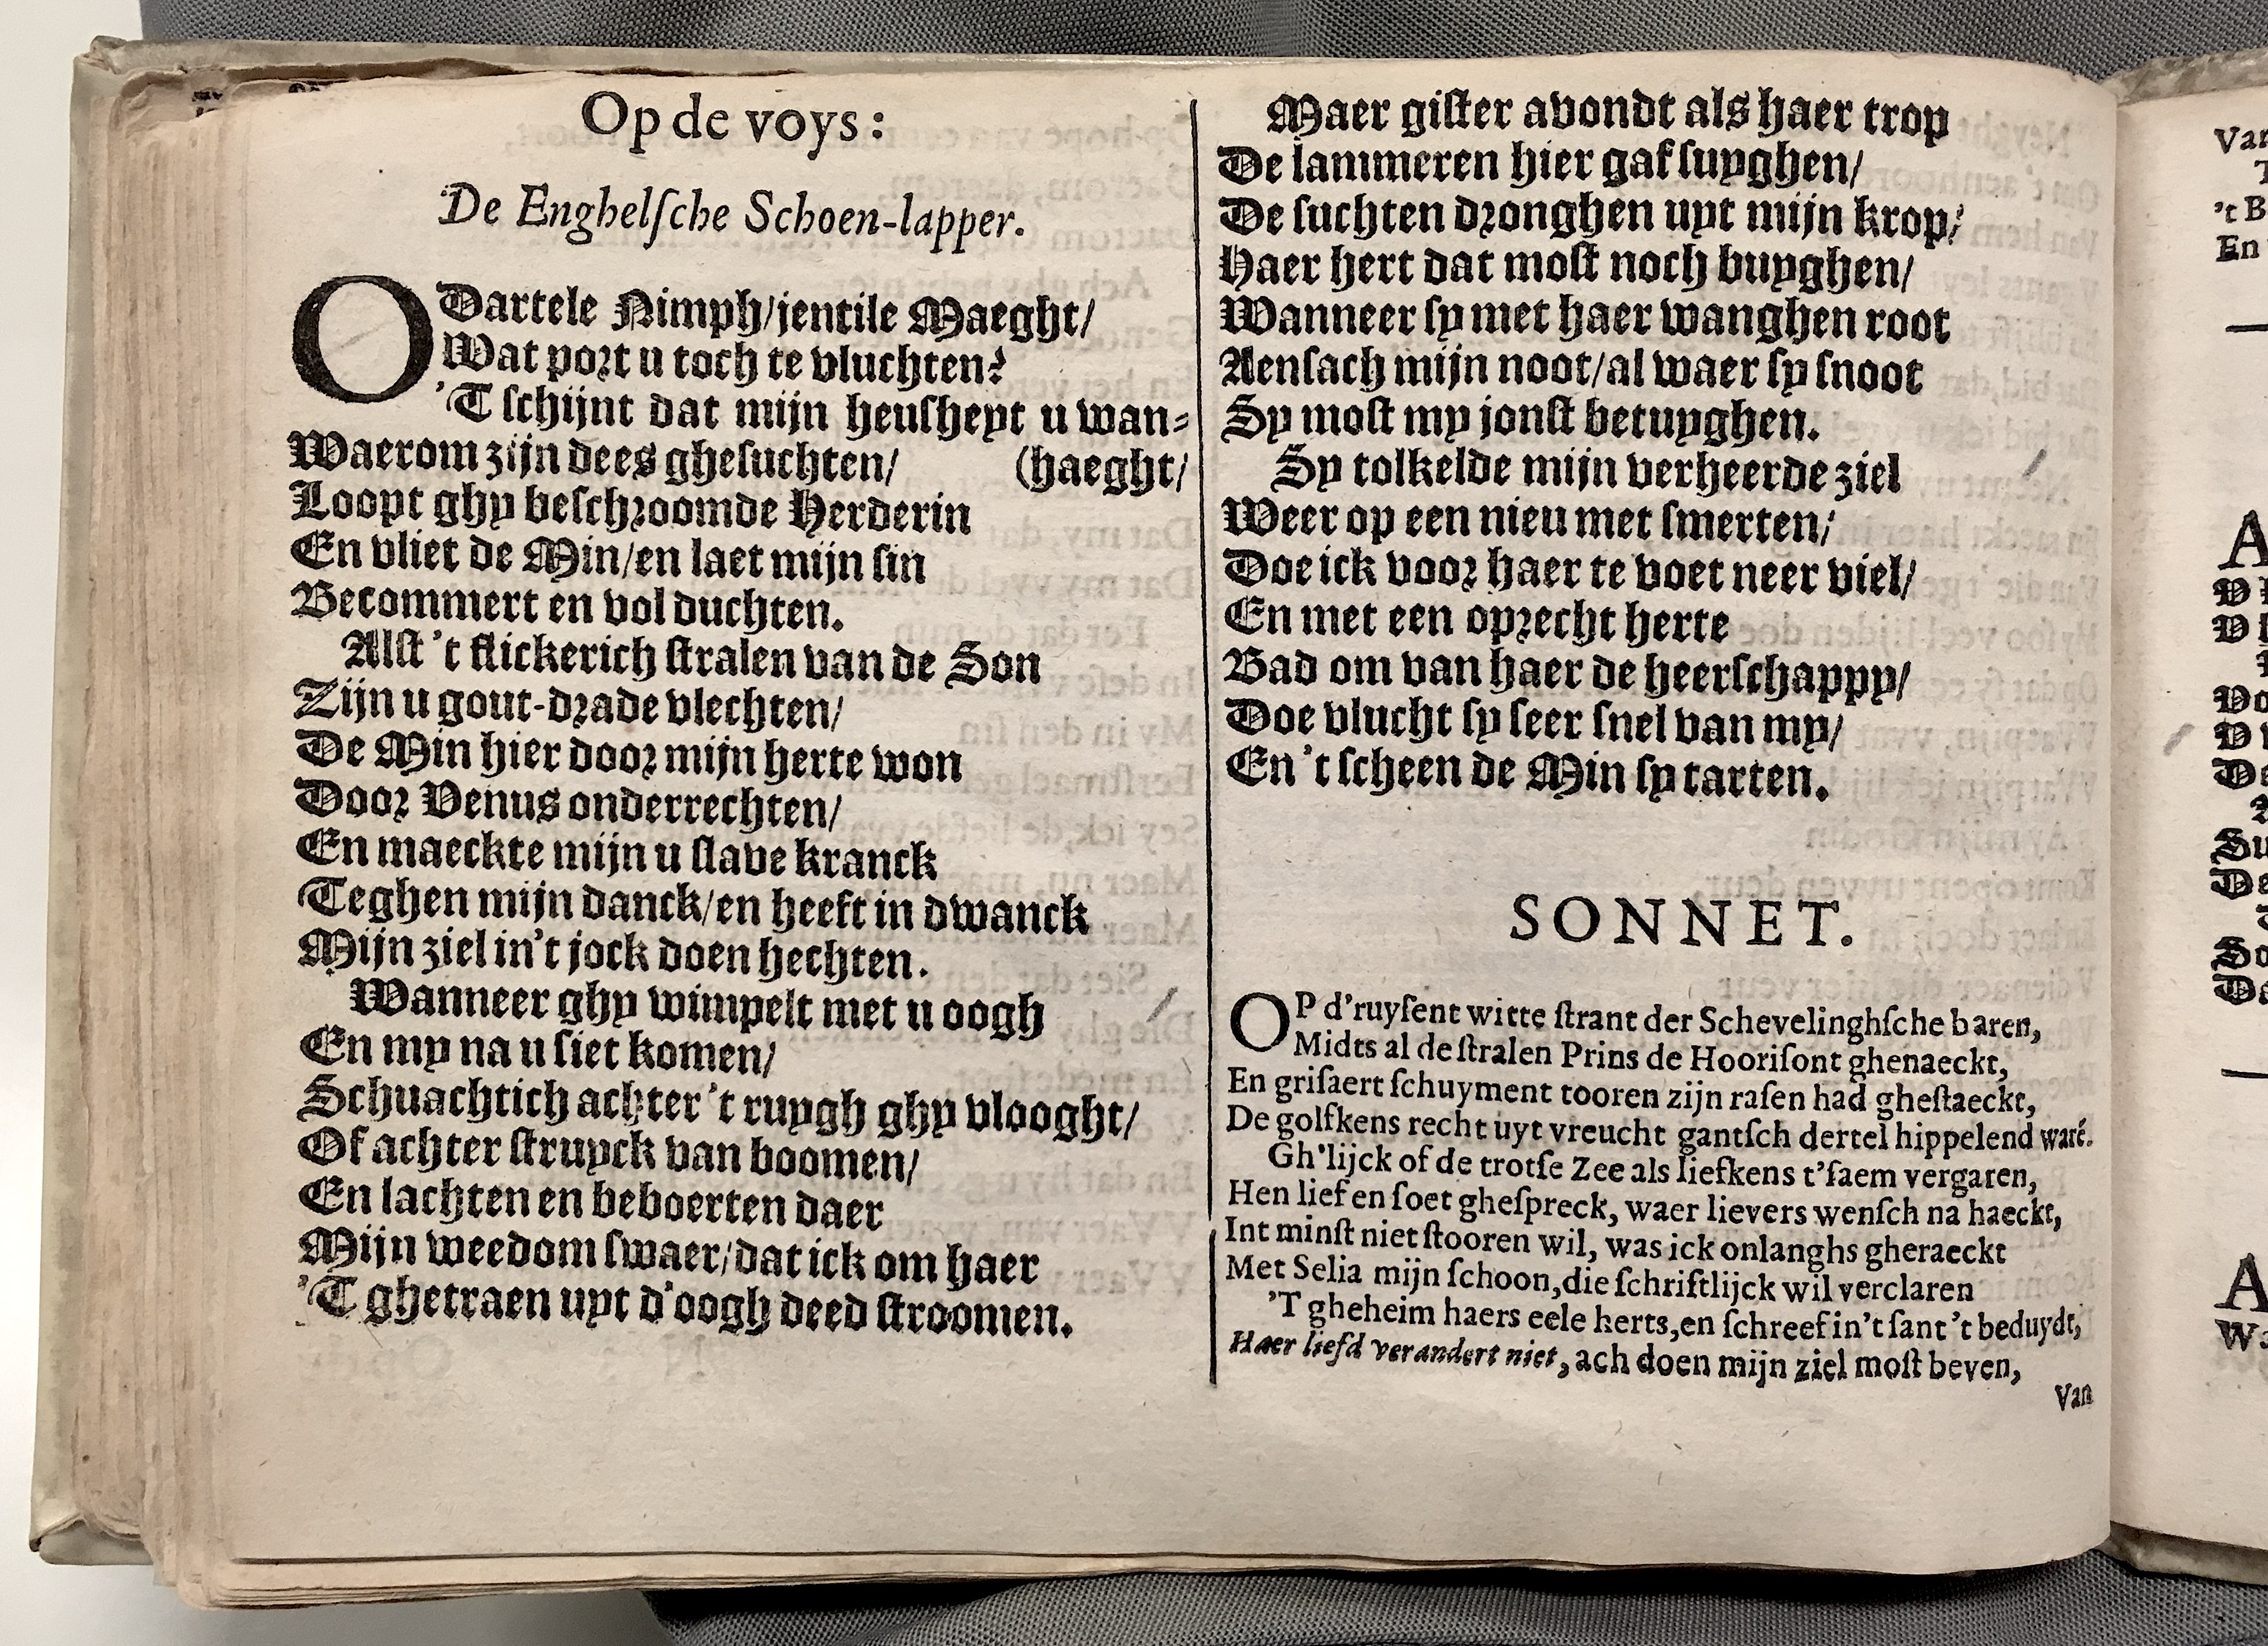 Op de voys:
De Enghelſche Schoen-lapper.
O Dartele Nimph/jentile Maeght/
Wat port u toch te vluchten?
'T ſchijnt dat mijn heuſheyt u wan-
Waerom zijn dees gheſuchten/ (haeght/
Loopt ghy beſchroomde Herderin
En vliet de Min/en laet mijn ſin
Becommert en vol duchten.
Alſt 't flickerich ſtralen van de Son
Zijn u gout-drade vlechten/
De Min hier door mijn herte won
Door Venus onderrechten/
En maeckte mijn u ſlave kranck
Teghen mijn danck/en heeft in dwanck
Mijn ziel in't jock doen hechten.
Wanneer ghy wimpelt met u oogh
En my na u ſiet komen/
Schuachtich achter 't ruygh ghy vlooght/
Of achter ſtruyck van boomen/
En lachten en beboerten daer
Mijn weedom ſwaer/dat ick om haer
'T ghetraen uyt d'oogh deed ſtroomen.
Maer giſter avondt als haer trop
De lammeren hier gaf ſuyghen/
De ſuchten dronghen uyt mijn krop/
Haer hert dat moſt noch buyghen/
Wanneer ſy met haer wanghen root
Aenſach mijn noot/al waer ſy ſnoot
Sy moſt my jonſt betuyghen.
Sy tolkelde mijn verheerde ziel
Weer op een nieu met ſmerten/
Doe ick voor haer te voet neer viel/
En met een oprecht herte
Bad om van haer de heerſchappy/
Doe vlucht ſy ſeer ſnel van my/
En 't ſcheen de Min ſy tarten.
SONNET.
OP d'ruyſent witte ſtrant der Schevelinghſche baren,
Midts al de ſtralen Prins de Hooriſont ghenaeckt,
En griſaert ſchuyment tooren zijn raſen had gheſtaeckt,
De golfkens recht uyt vreucht gantſch dertel hippelend warē.
Gh'lijck of de trotſe Zee als liefkens t'ſaem vergaren,
Hen lief en ſoet gheſpreck, waer lievers wenſch na haeckt,
Int minſt niet ſtooren wil, was ick onlanghs gheraeckt
Met Selia mijn ſchoon,die ſchriftlijck wil verclaren
'T gheheim haers eele herts,en ſchreef in't ſant 't beduydt,
Haer liefd verandert niet, ach doen mijn ziel moſt beven,
Van